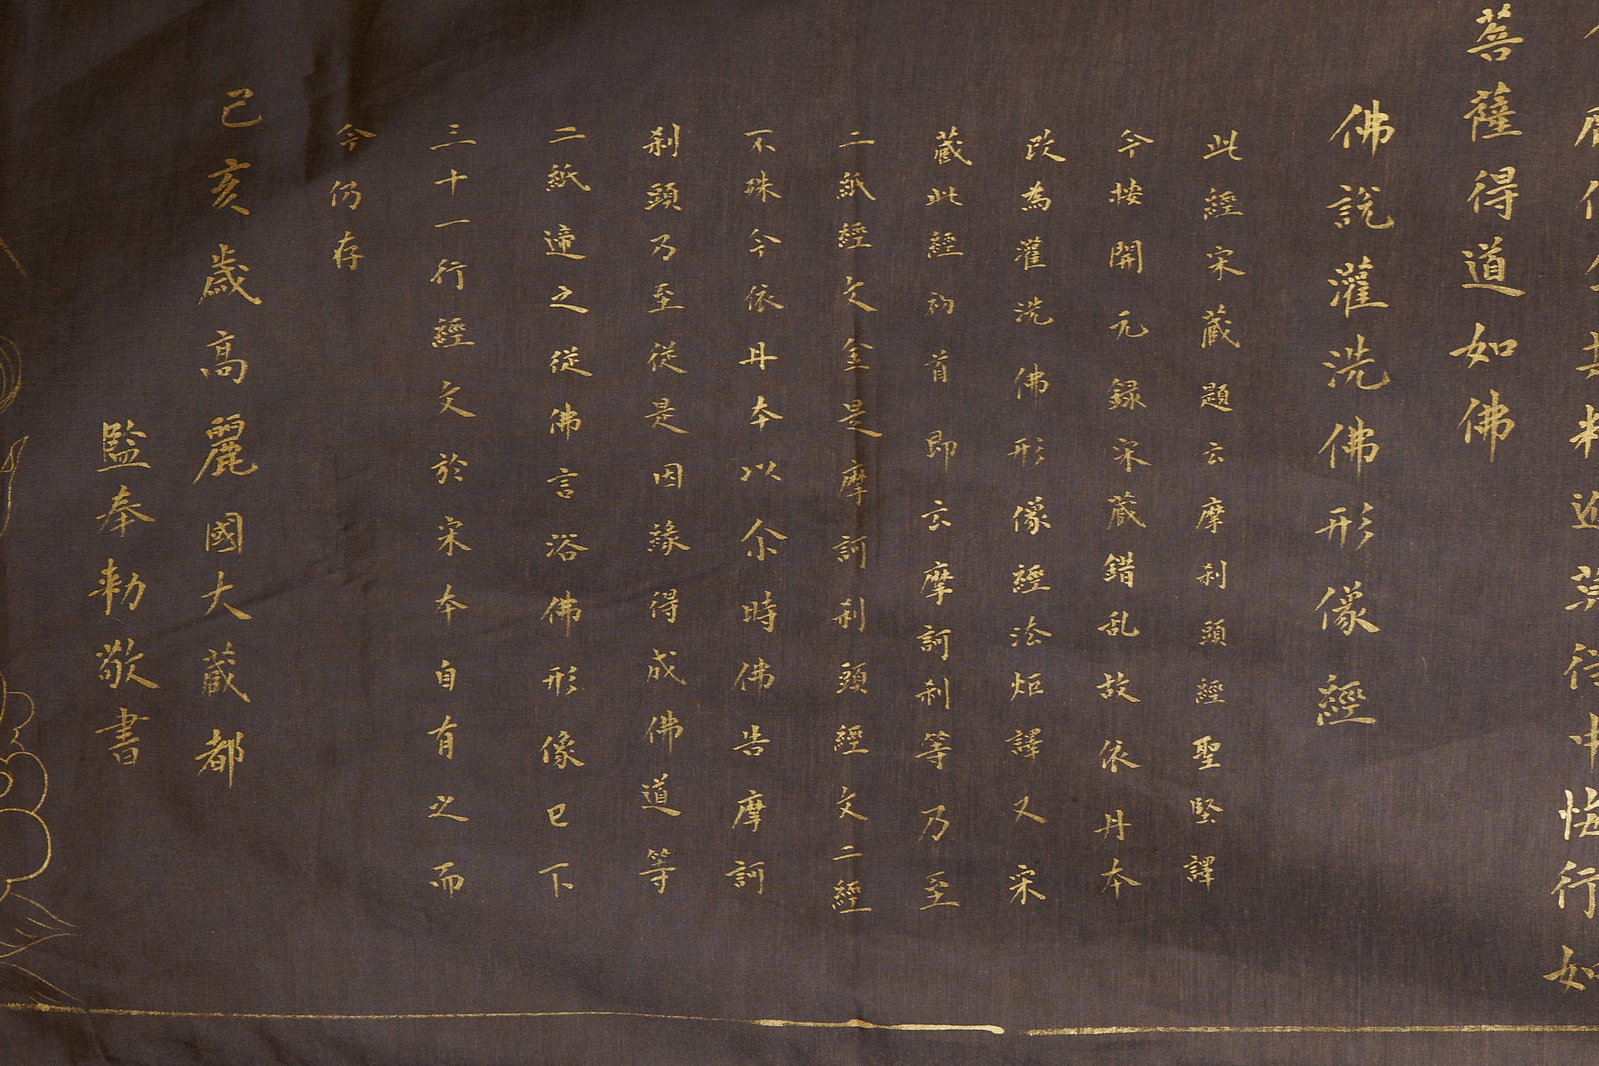 菩薩得道如佛
佛說灌洗佛形像經
此經宋蔵題云摩刹頭經聖堅譯
今按開元録宋蔵錯乱故依丹本
改為灌洗佛形像經法炬譯又宋
蔵此經初首即云摩訶刹等乃至
二紙經文全是摩訶刹頭經文二經
不殊今依丹本以尒時佛告摩訶
刹頭乃至從是因緣得成佛道等
二紙適之從佛言浴佛形像已下
三十一行經文於宋本自有之而
今仍存
己亥歳高麗國大蔵都
監奉勅敬書